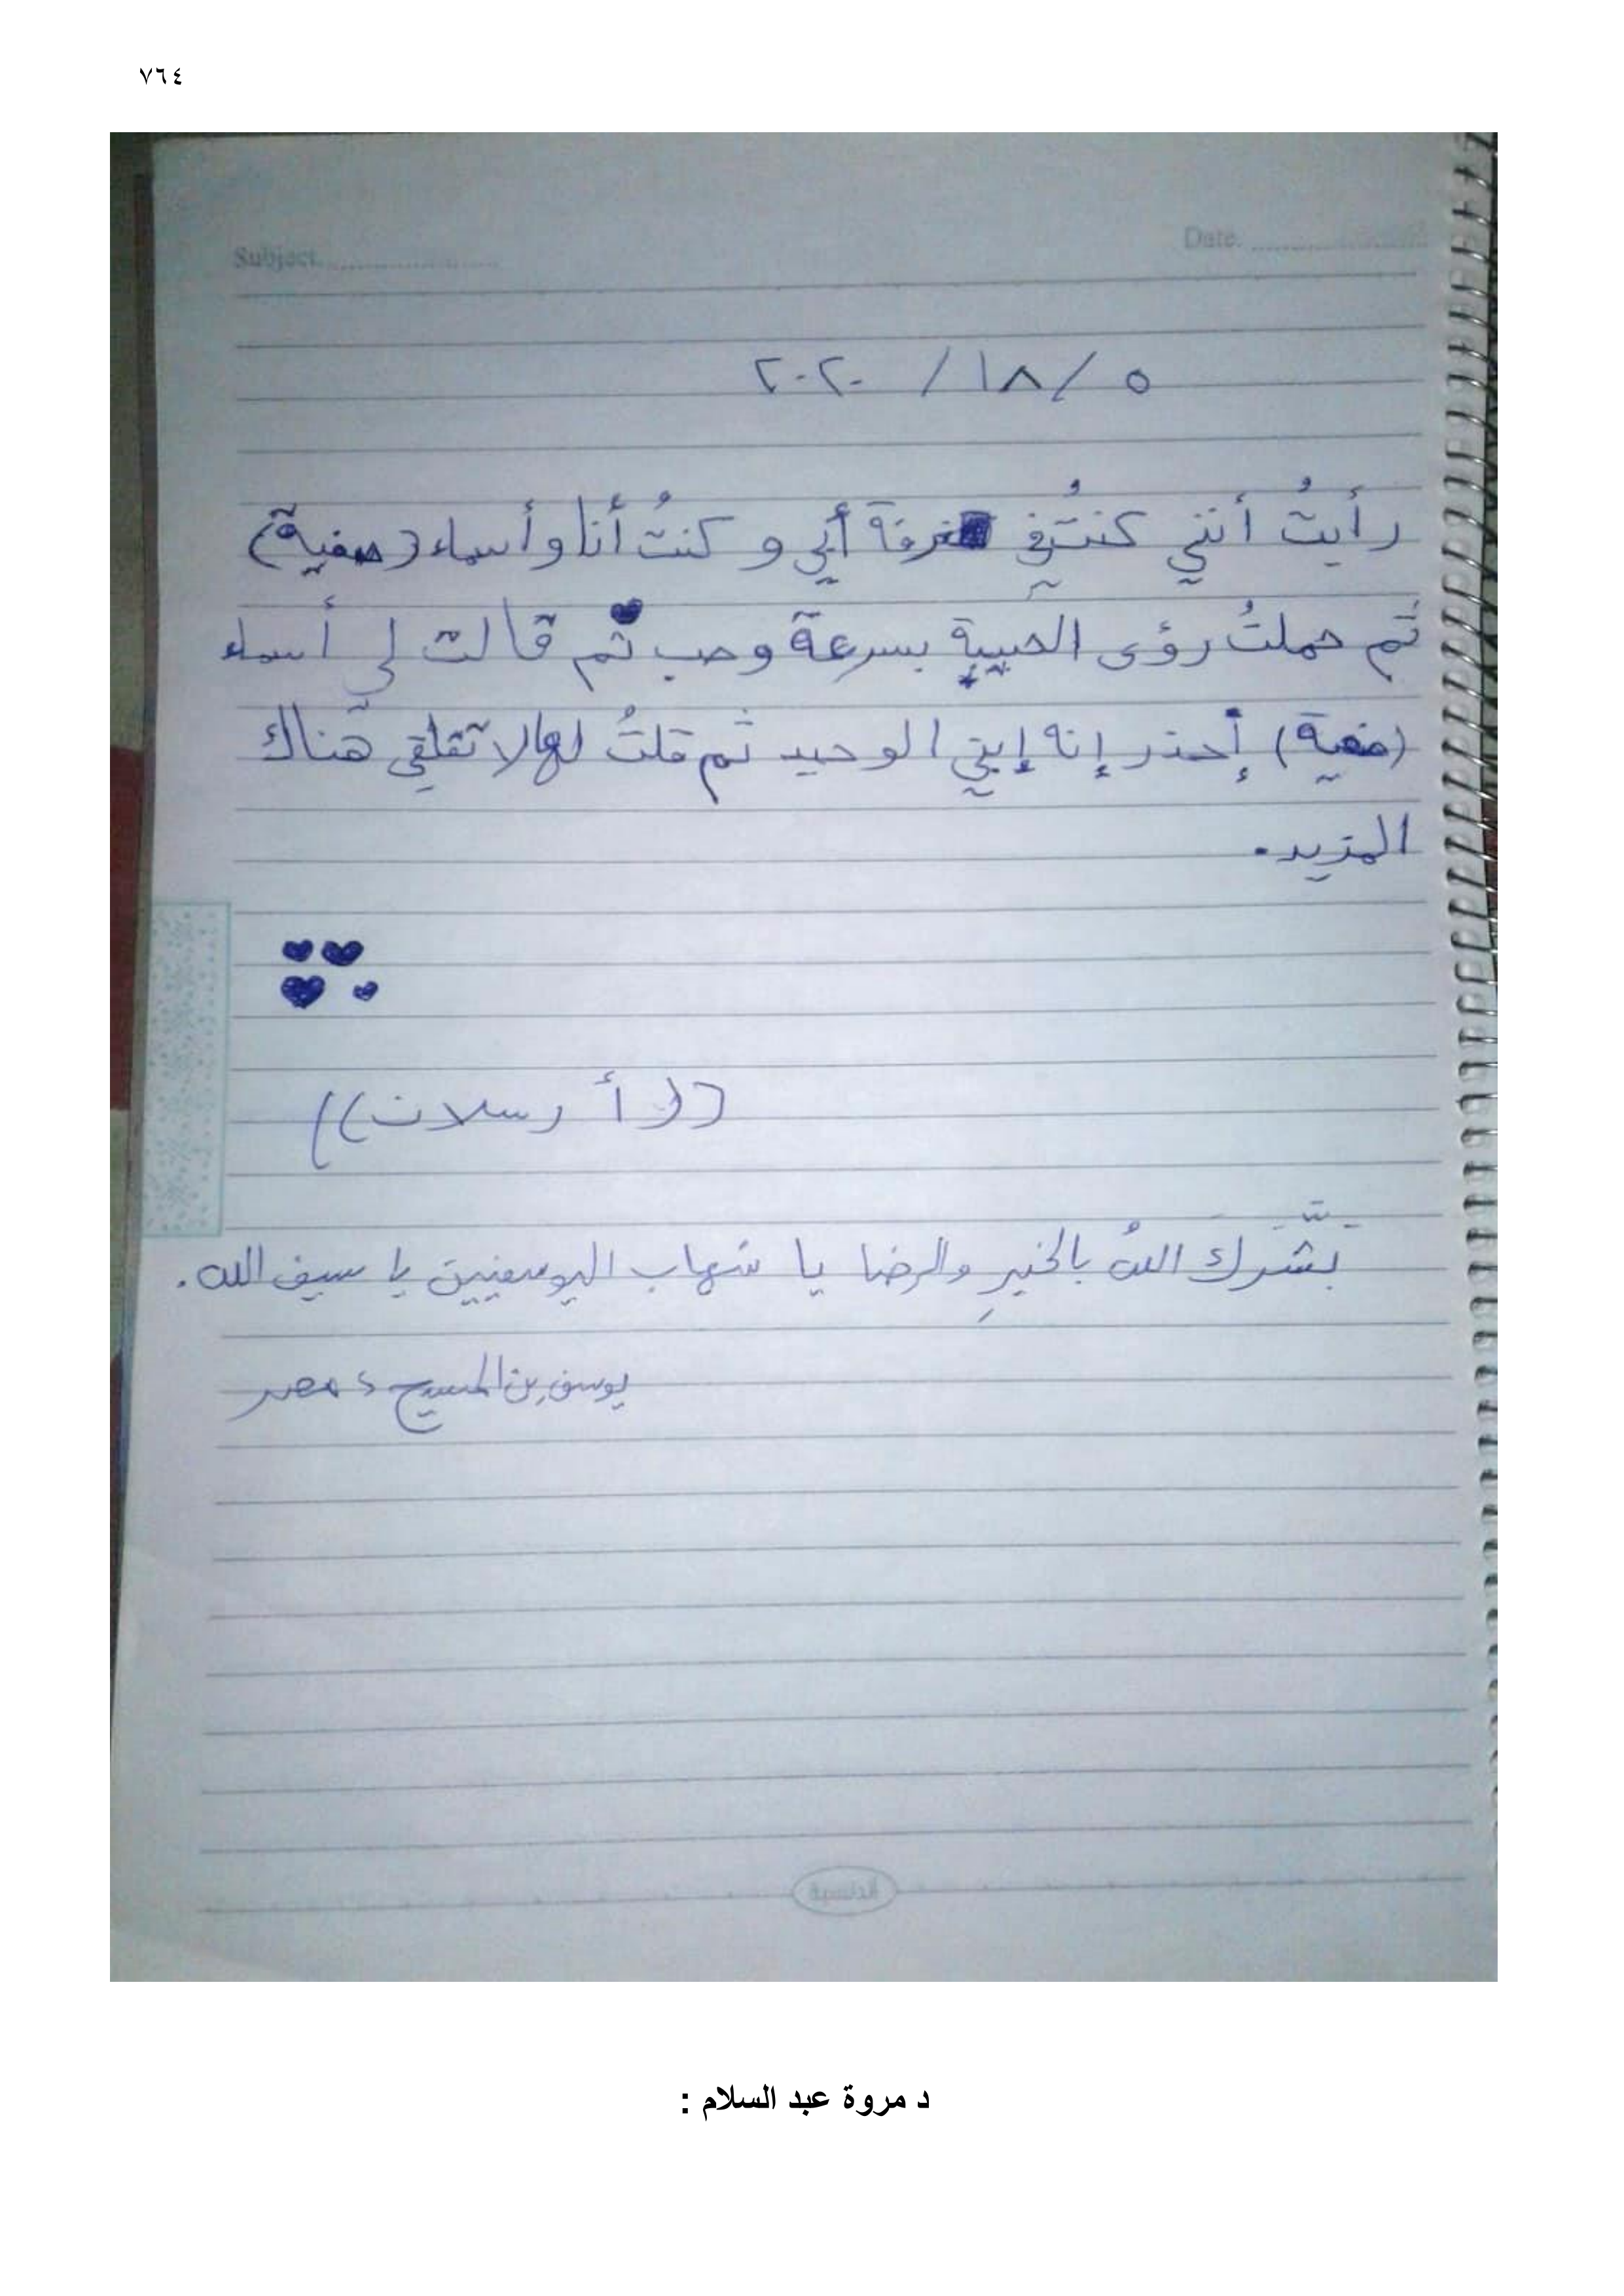 ٧٦٤
Subject
Date:
٥ / ١٨ / ٢٠٢٠
رأيتُ أنني كنتُ في غرفة أبي و كنتُ أنا و أسماء (صفية)
ثم حملتُ رؤى الحبيبة بسرعة وحب ثم قالت لي أسماء
(صفية) إحذر إنه إبني الوحيد ثم قلتُ لها لا تقلقي هناك
المزيد.
((أرسلان))
بَشَّرَكَ اللهُ بالخيرِ والرضا يا شهاب اليوسفيين يا سيف الله.
يوسف بن المسيح، مصر
د مروة عبد السلام :